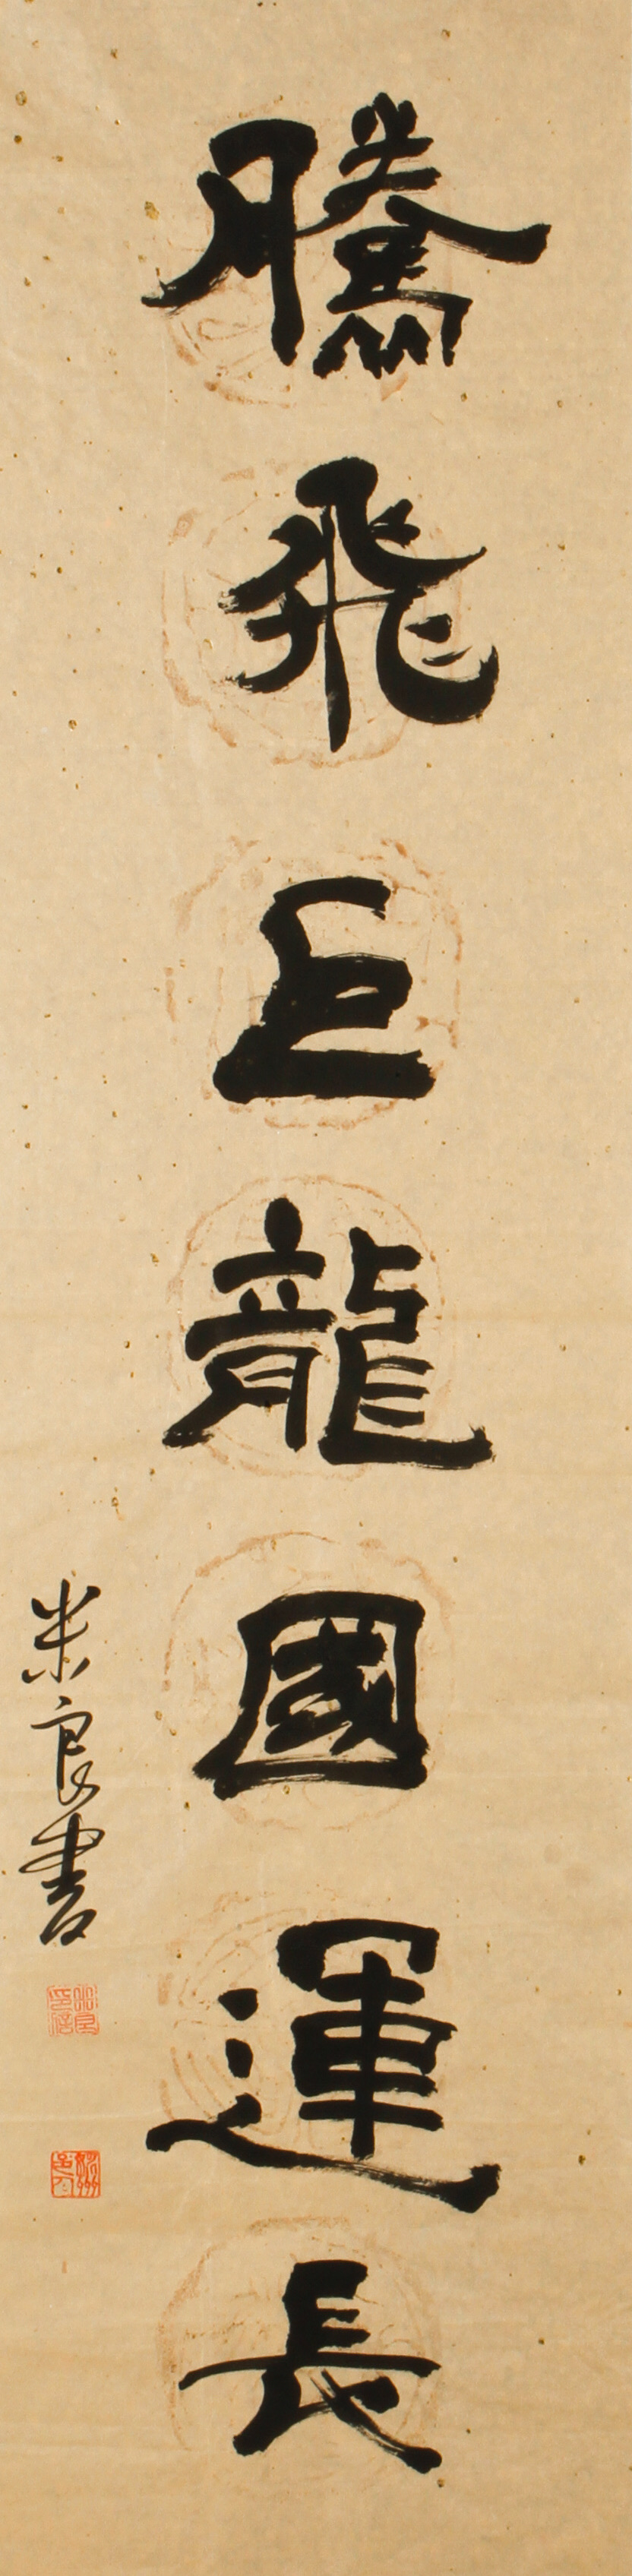 騰飛巨龍國運長
米良書